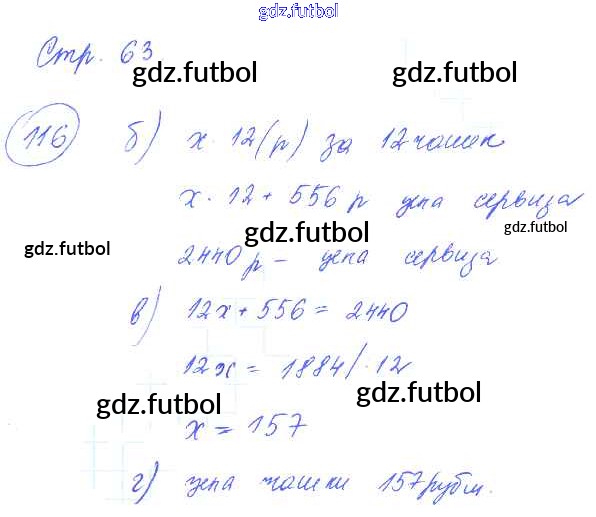 gdz.futbol
Стр. 63
gdz.futbol
116 б) x · 12 (р) за 12 чашек
x · 12 + 556 р цена сервиза
gdz.futbol
gdz.futbol
gdz.futbol
2440 р – цена сервиза
в) 12x + 556 = 2440
gdz.futbol
12x = 1884 / · 12
gdz.futbol
gdz.futbol
x = 157
г) цена чашки 157 рубл.